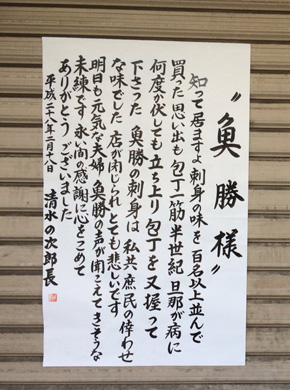 〝魚勝様〟
知って居ますよ刺身の味を 百名以上並んで
買った思い出も 包丁一筋半世紀 旦那が病に
何度か伏しても 立ち上り 包丁を 又 握って
下さった 魚勝の刺身は 私共 庶民の倖わせ
な味でした 店が閉じられ とても悲しいです
明日も元気な夫婦 魚勝の声が聞こえてきそうな
未練です 永い間の感謝に心をこめて
ありがとうございました
平成二十八年二月十八日 清水の次郎長